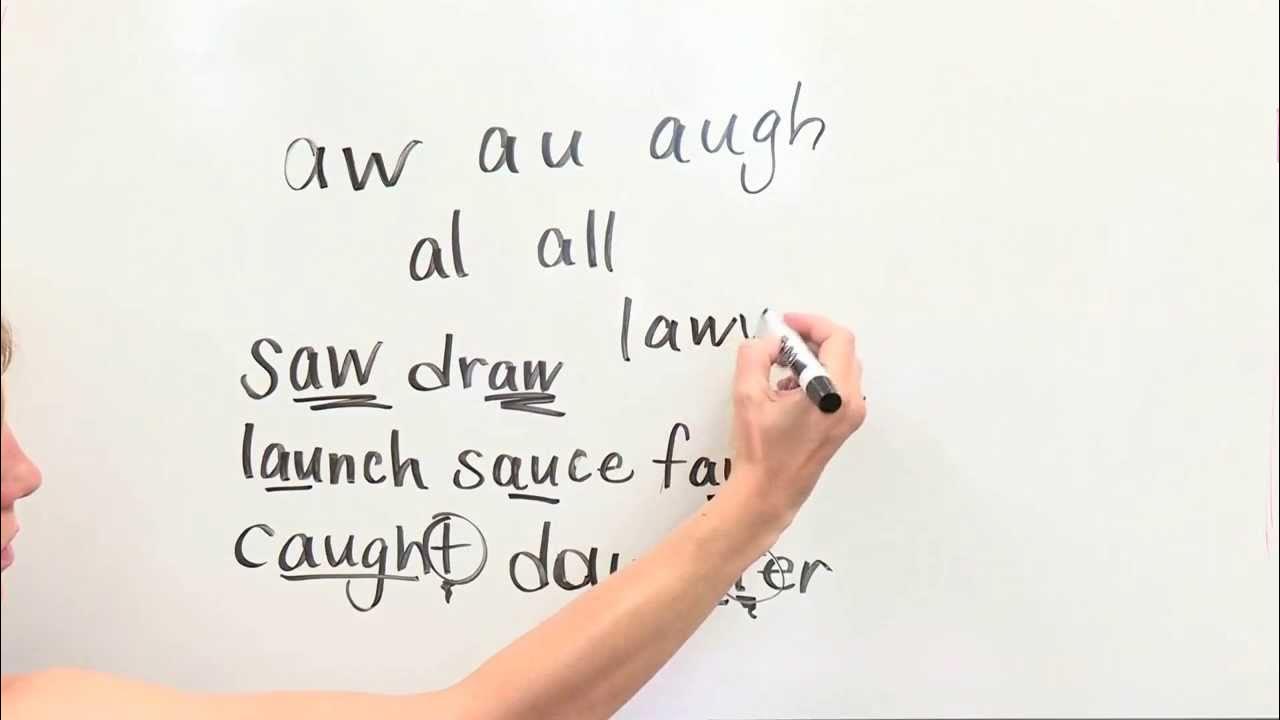 aw au augh
al all
law
saw draw
launch sauce
caught daughter